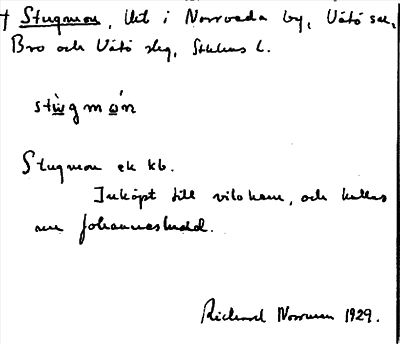 † Stugmon, Utt i Norrveda by, Vätö sn,
Bro och Vätö slg, Sthlms l.
stùgmón
Stugmon ek kb.
Inköpt till vilohem, och kallas
nu Johanneslund.
Richard Norrman 1929.